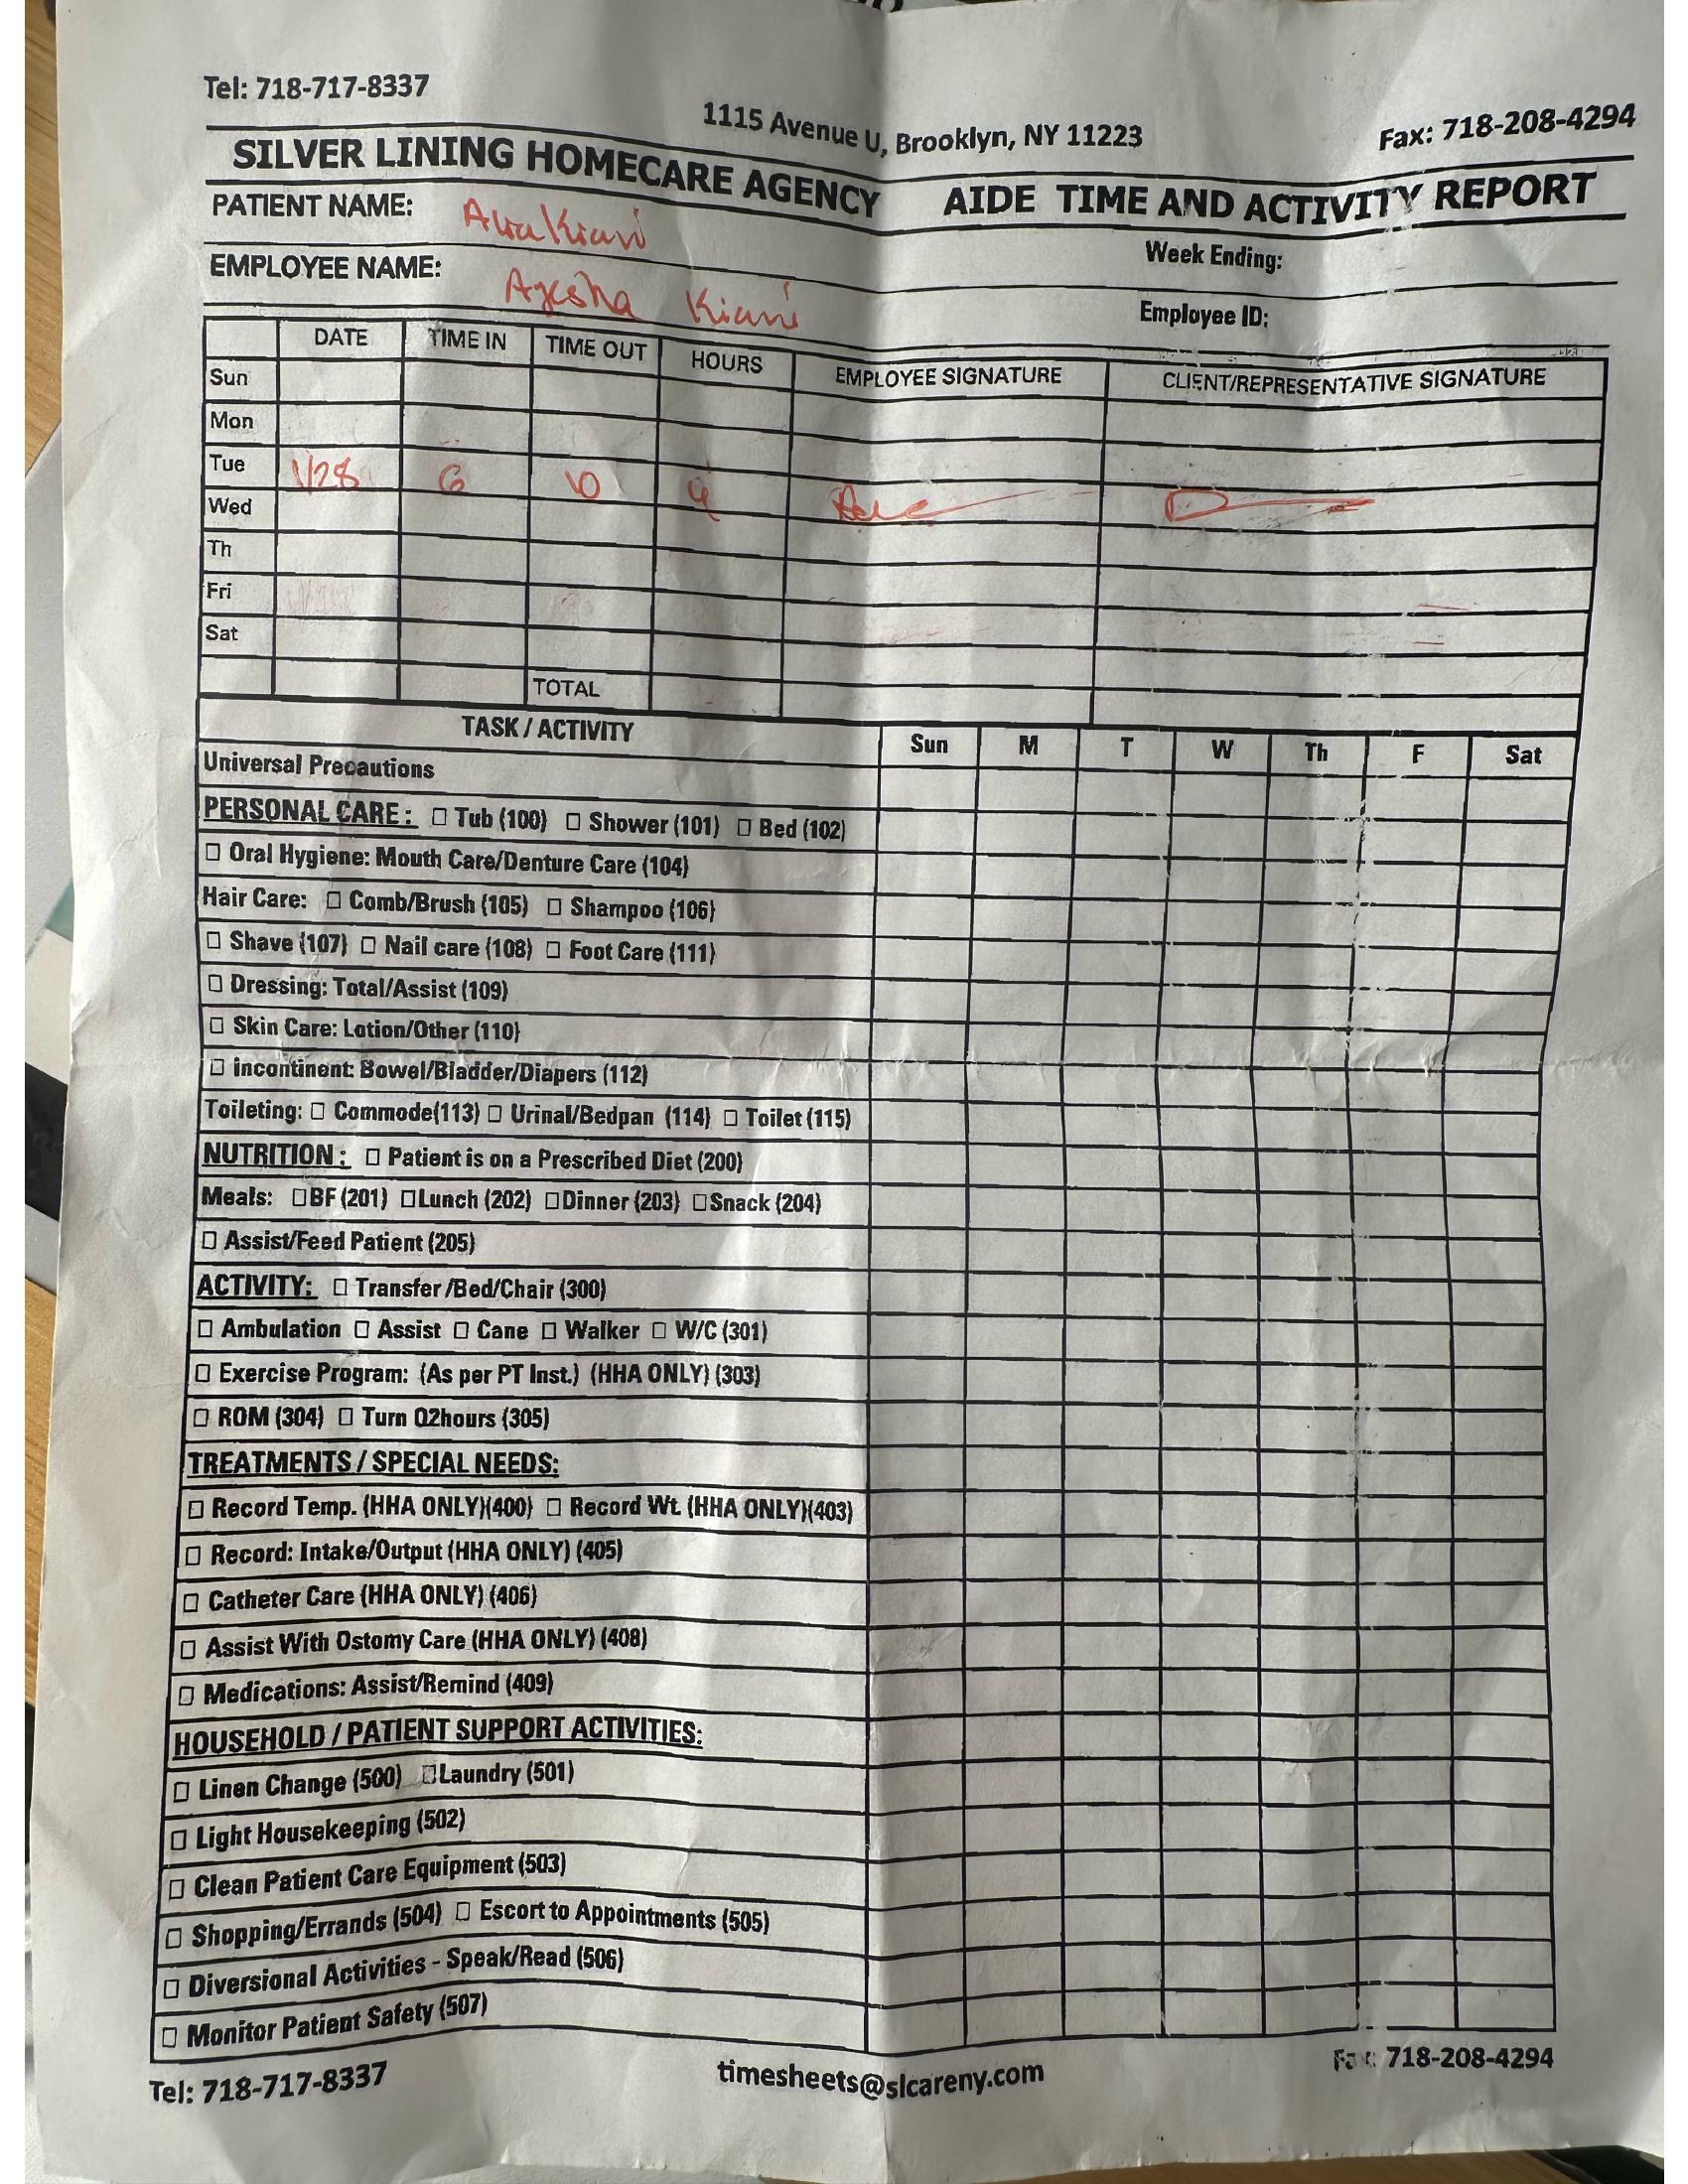 Tel: 718-717-8337 1115 Avenue U, Brooklyn, NY 11223 Fax: 718-208-4294
SILVER LINING HOMECARE AGENCY AIDE TIME AND ACTIVITY REPORT
PATIENT NAME: Kiani Week Ending:
EMPLOYEE NAME: Ayesha Kiani Employee ID:
DATE TIME IN TIME OUT HOURS EMPLOYEE SIGNATURE CLIENT/REPRESENTATIVE SIGNATURE
Sun
Mon
Tue 1/28 6 10 4
Wed
Th
Fri
Sat
TOTAL
TASK / ACTIVITY Sun M T W Th F Sat
Universal Precautions
PERSONAL CARE: □ Tub (100) □ Shower (101) □ Bed (102)
□ Oral Hygiene: Mouth Care/Denture Care (104)
Hair Care: □ Comb/Brush (105) □ Shampoo (106)
□ Shave (107) □ Nail care (108) □ Foot Care (111)
□ Dressing: Total/Assist (109)
□ Skin Care: Lotion/Other (110)
□ incontinent: Bowel/Bladder/Diapers (112)
Toileting: □ Commode(113) □ Urinal/Bedpan (114) □ Toilet (115)
NUTRITION: □ Patient is on a Prescribed Diet (200)
Meals: □BF (201) □Lunch (202) □Dinner (203) □Snack (204)
□ Assist/Feed Patient (205)
ACTIVITY: □ Transfer /Bed/Chair (300)
□ Ambulation □ Assist □ Cane □ Walker □ W/C (301)
□ Exercise Program: (As per PT Inst.) (HHA ONLY) (303)
□ ROM (304) □ Turn Q2hours (305)
TREATMENTS / SPECIAL NEEDS:
□ Record Temp. (HHA ONLY)(400) □ Record Wt. (HHA ONLY)(403)
□ Record: Intake/Output (HHA ONLY) (405)
□ Catheter Care (HHA ONLY) (406)
□ Assist With Ostomy Care (HHA ONLY) (408)
□ Medications: Assist/Remind (409)
HOUSEHOLD / PATIENT SUPPORT ACTIVITIES:
□ Linen Change (500) □Laundry (501)
□ Light Housekeeping (502)
□ Clean Patient Care Equipment (503)
□ Shopping/Errands (504) □ Escort to Appointments (505)
□ Diversional Activities - Speak/Read (506)
□ Monitor Patient Safety (507)
Tel: 718-717-8337 timesheets@slcareny.com Fax: 718-208-4294